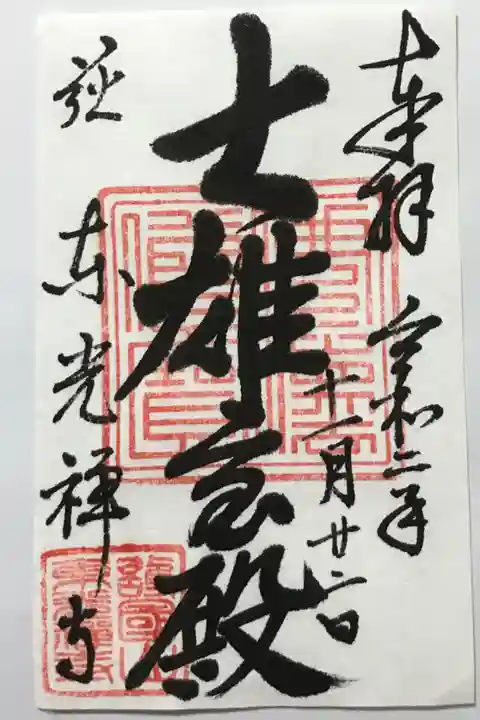 奉拝 令和二年
十一月廿二日
大雄宝殿
東光禅寺